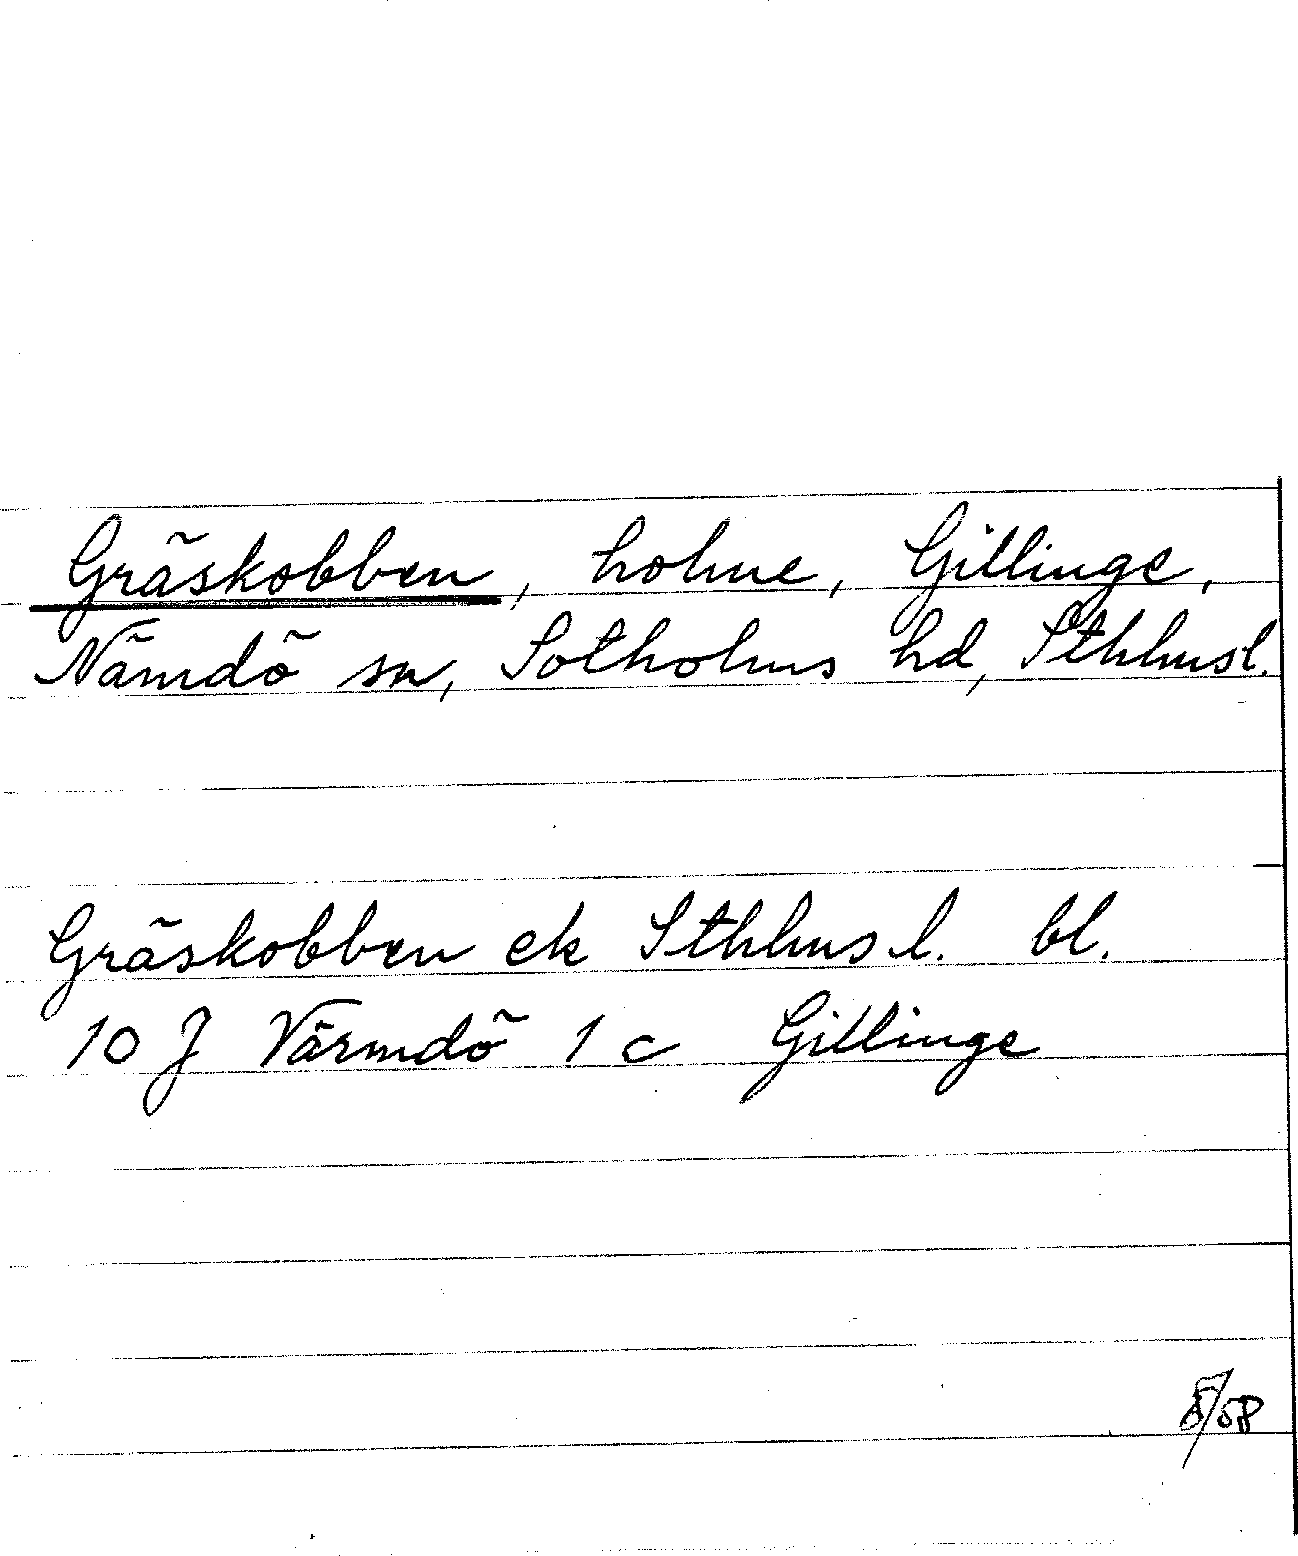 Gräskobben, holme, Gillinge,
Nämdö sn, Sotholms hd, Sthlmsl.
Gräskobben ek Sthlms l. bl.
10 J Värmdö 1 c Gillinge